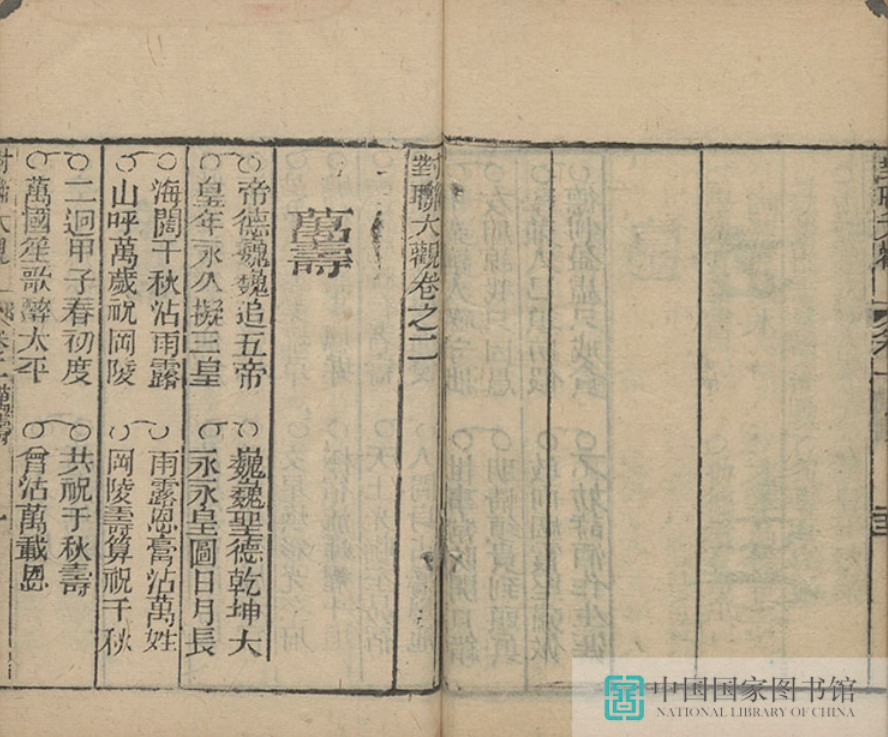 對聯大觀卷之二
萬壽
帝德巍巍追五帝 巍巍聖德乾坤大
皇年永久擬三皇 永永皇圖日月長
海闊千秋沾雨露 雨露恩膏沾萬姓
山呼萬歲祝岡陵 岡陵壽算祝千秋
二迴甲子春初度 共祝千秋壽
萬國笙歌醉太平 曾沾萬載恩
對聯大觀 卷二 萬壽 一
中国国家图书馆
NATIONAL LIBRARY OF CHINA